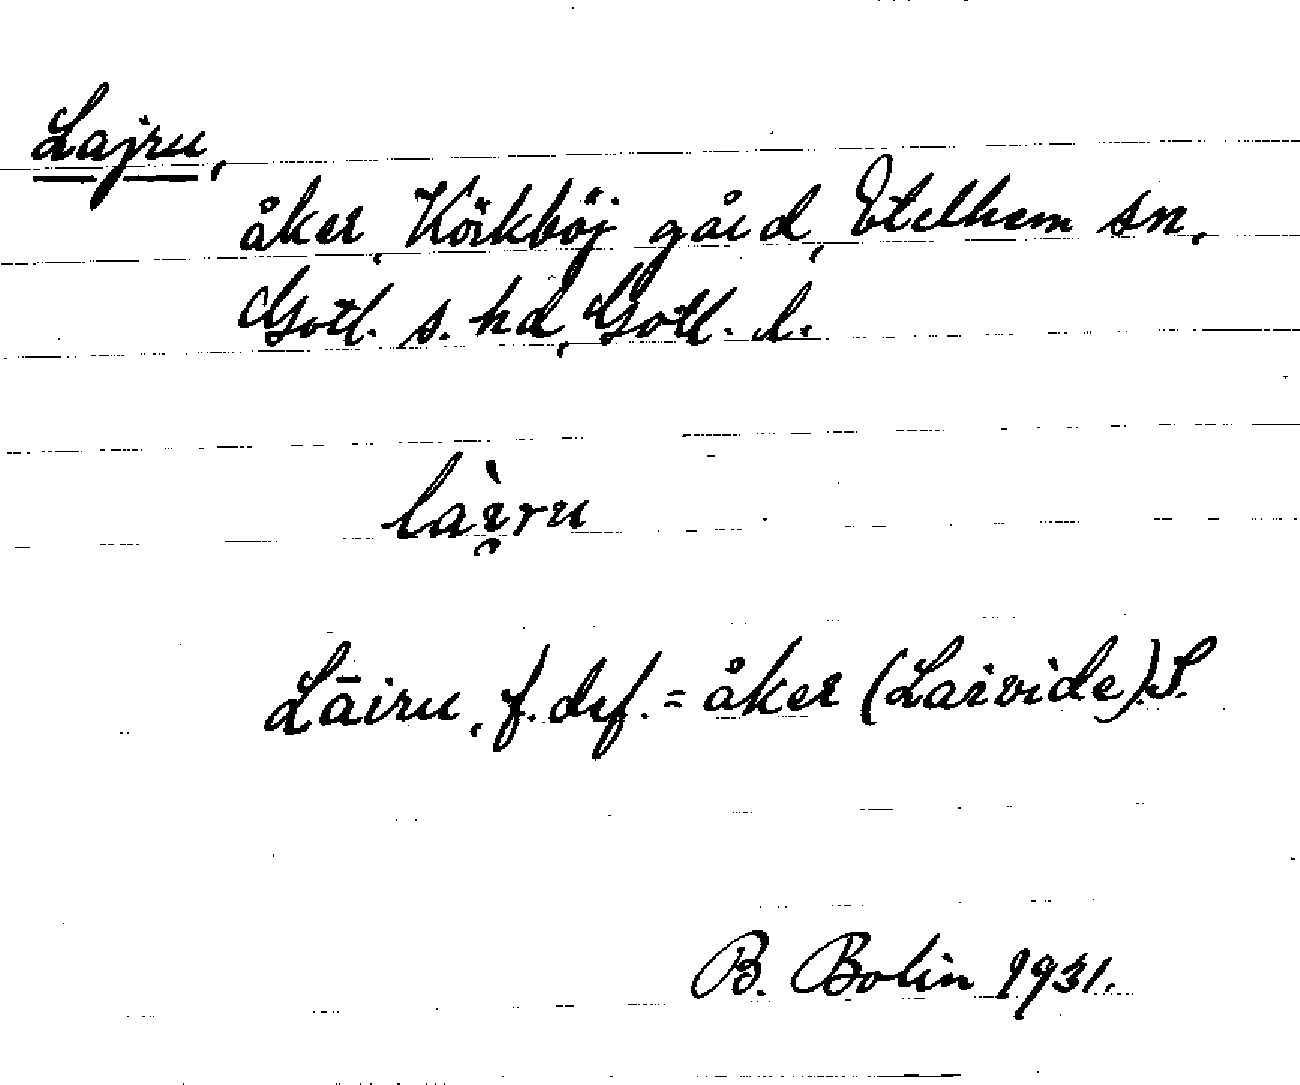 Lajru,
åker, Körkböj gård, Etelhem sn,
Gotl. s. hd, Gotl. l.
laì̯ru
Lāiru, f. def. = åker (Laivide). S.
B. Bolin 1931.